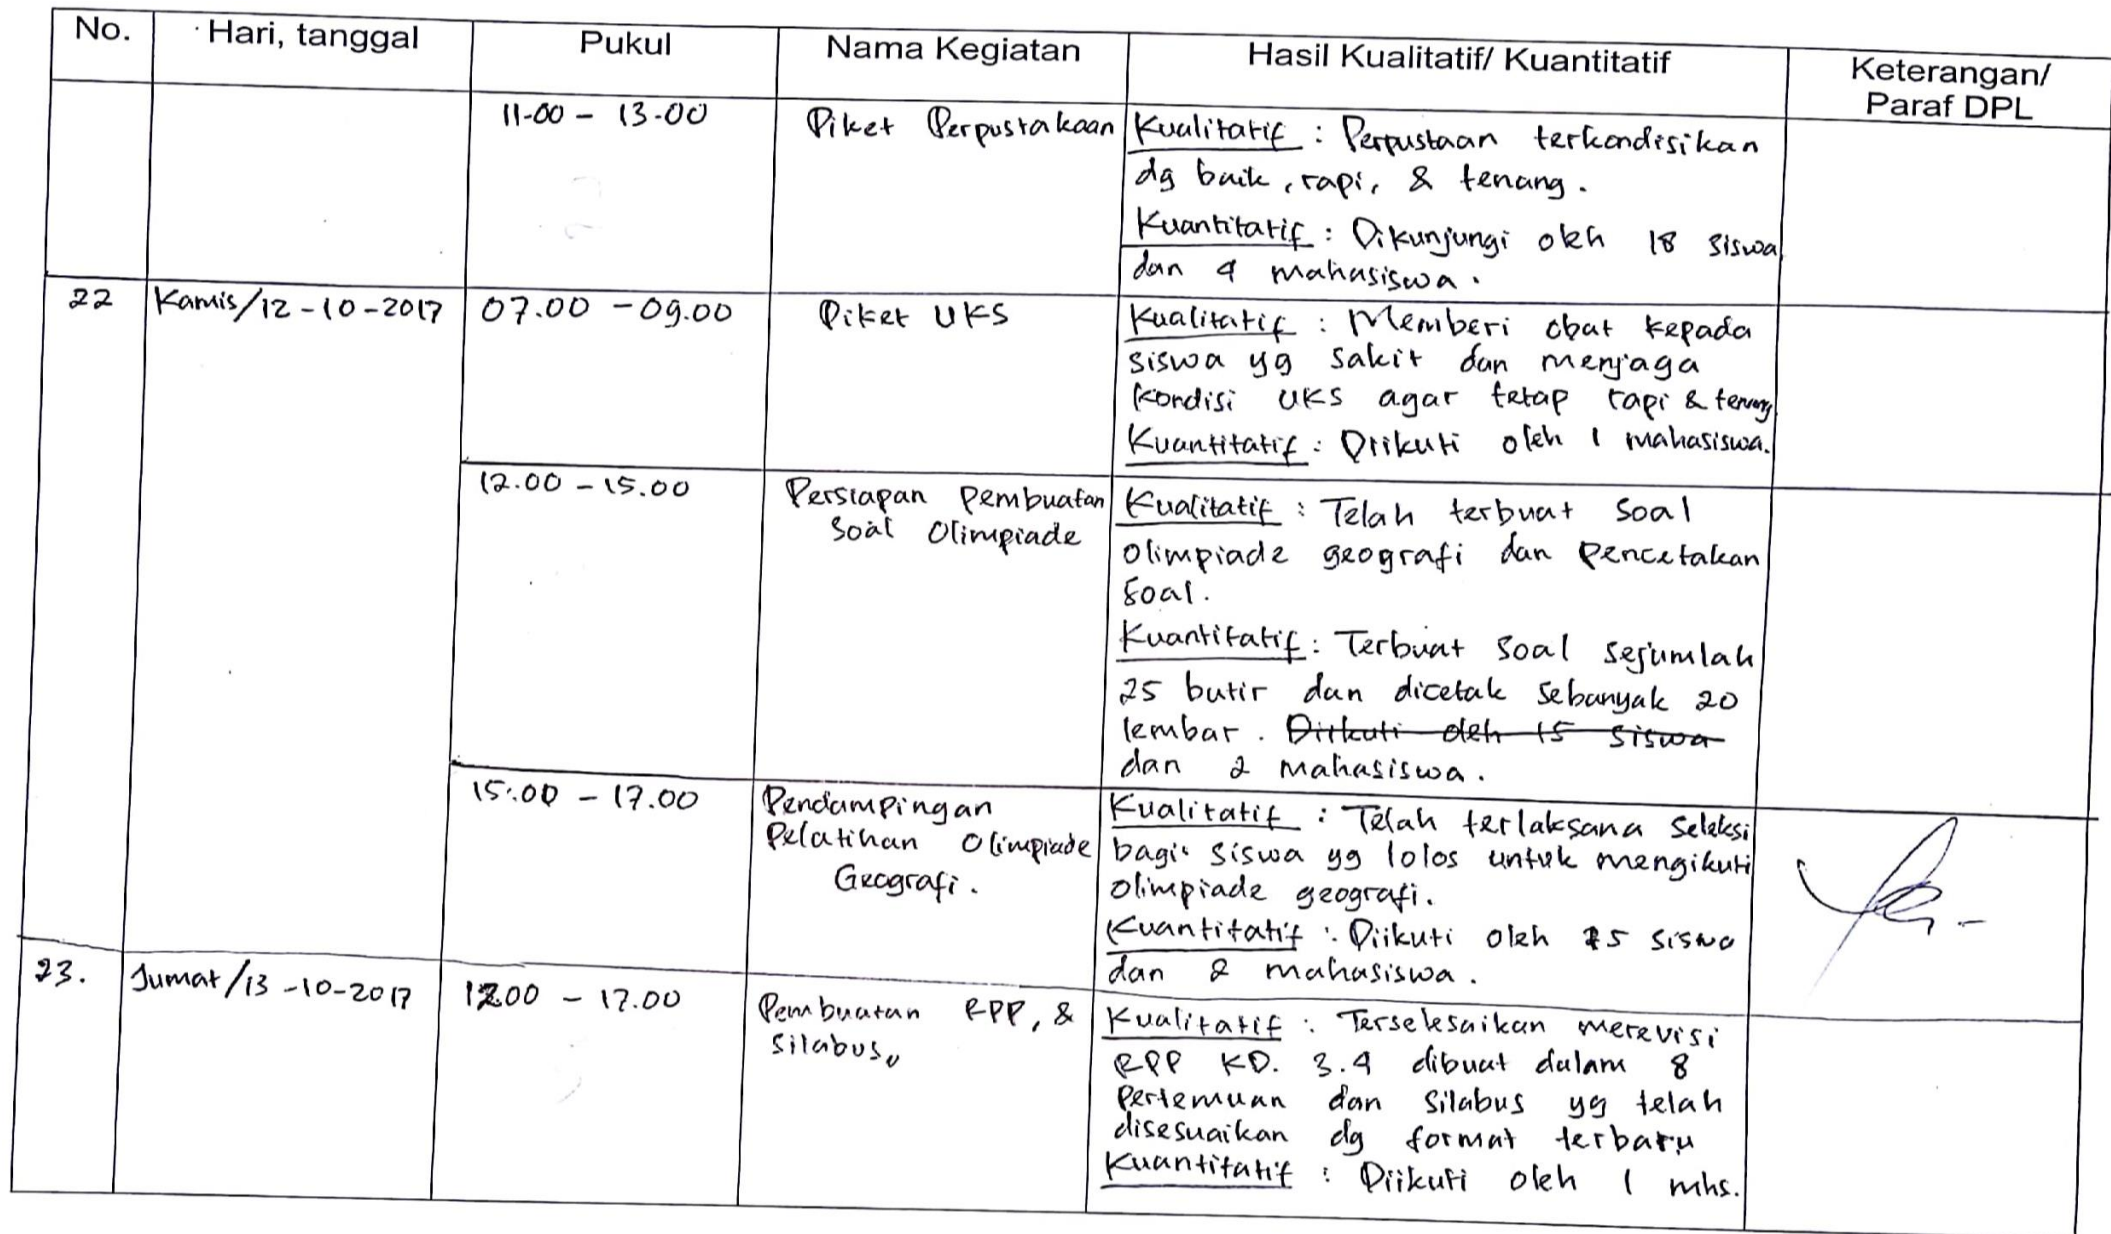 No. Hari, tanggal Pukul Nama Kegiatan Hasil Kualitatif/ Kuantitatif Keterangan/
Paraf DPL
11.00 - 13.00 Piket Perpustakaan Kualitatif : Perpustaan terkondisikan
dg baik, rapi, & tenang.
Kuantitatif : Dikunjungi oleh 18 siswa
dan 4 mahasiswa.
22 Kamis/12-10-2017 07.00 - 09.00 Piket UKS Kualitatif : Memberi obat kepada
siswa yg sakit dan menjaga
kondisi UKS agar tetap rapi & tenang
Kuantitatif : Diikuti oleh 1 mahasiswa.
12.00 - 15.00 Persiapan Pembuatan
Soal Olimpiade
Kualitatif : Telah terbuat soal
olimpiade geografi dan pencetakan
soal.
Kuantitatif : Terbuat soal sejumlah
25 butir dan dicetak sebanyak 20
lembar. Diikuti oleh 15 siswa
dan 2 mahasiswa.
15.00 - 17.00 Pendampingan
Pelatihan Olimpiade
Geografi.
Kualitatif : Telah terlaksana seleksi
bagi siswa yg lolos untuk mengikuti
olimpiade geografi.
Kuantitatif : Diikuti oleh 15 siswa
dan 2 mahasiswa.
23. Jumat/13-10-2017 12.00 - 17.00 Pembuatan RPP, &
Silabus.
Kualitatif : Terselesaikan merevisi
RPP KD. 3.4 dibuat dalam 8
pertemuan dan silabus yg telah
disesuaikan dg format terbaru
Kuantitatif : Diikuti oleh 1 mhs.